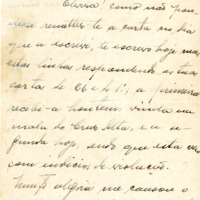 como não pou
remetter-te a carta no dia
que a escrevo, te escrevo hoje
estas linhas respondendo as tuas
cartas de 26 e 1º; a primeira
recebi-a hontem vinda na
mala do Cruz Alta, e a se
gunda hoje, sendo que esta veio
com indicios de violação.
Muita alegria me causou o